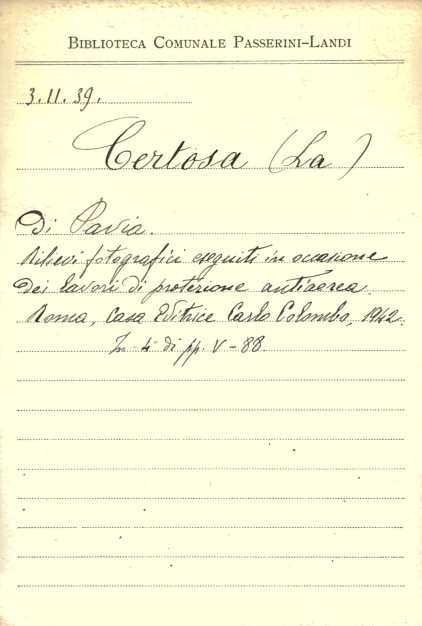 BIBLIOTECA COMUNALE PASSERINI-LANDI
3.11.39.
Certosa (La)
Di Pavia.
Rilievi fotografici eseguiti in occasione
dei lavori di protezione antiaerea.
Roma, Casa Editrice Carlo Colombo, 1942.
In 4° di pp. V-88.